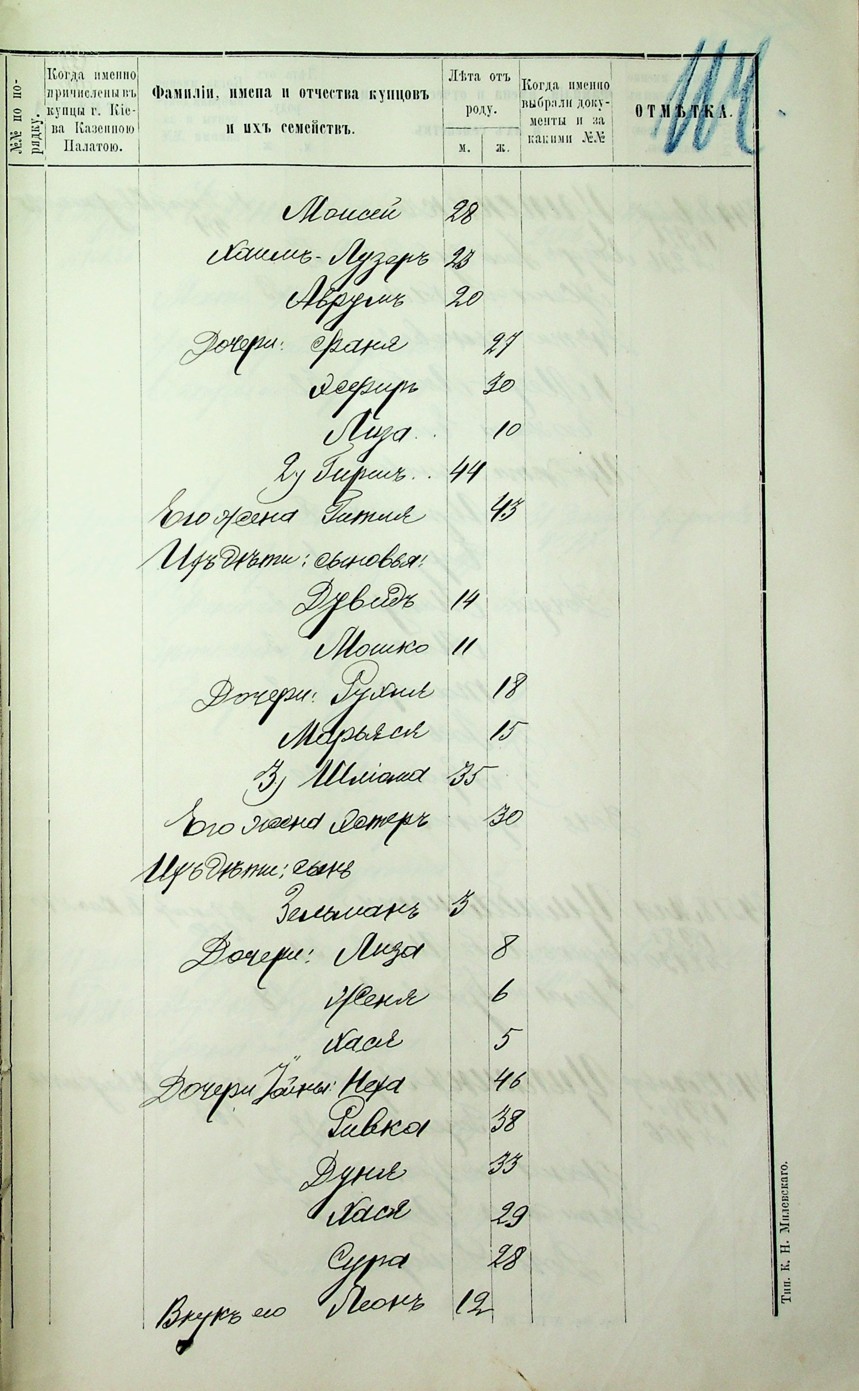 114
№№ по по-
рядку.
Когда именно
причислены въ
купцы г. Кіе-
ва Казенною
Палатою.
Фамиліи, имена и отчества купцовъ
и ихъ семействъ.
Лѣта отъ
роду.
м. ж.
Когда именно
выбрали доку-
менты и за
какими №№
ОТМѢТКА.
Моисей 28
Хаимъ-Лузеръ 23
Аврумъ 20
Дочери: Фаня 27
Эсфирь 30
Лиза 10
2) Гиршъ 44
Его жена Гитля 43
Ихъ дѣти: сыновья:
Дувидъ 14
Мошко 11
Дочери: Рухля 18
Марьяся 15
3) Шліома 35
Его жена Эстеръ 30
Ихъ дѣти: сынъ
Зельманъ 3
Дочери: Лиза 8
Женя 6
Хася 5
Дочери Іойны: Неха 46
Ривка 38
Дуня 33
Хася 29
Сура 28
Внукъ его Леонъ 12
Тип. К. Н. Милевскаго.